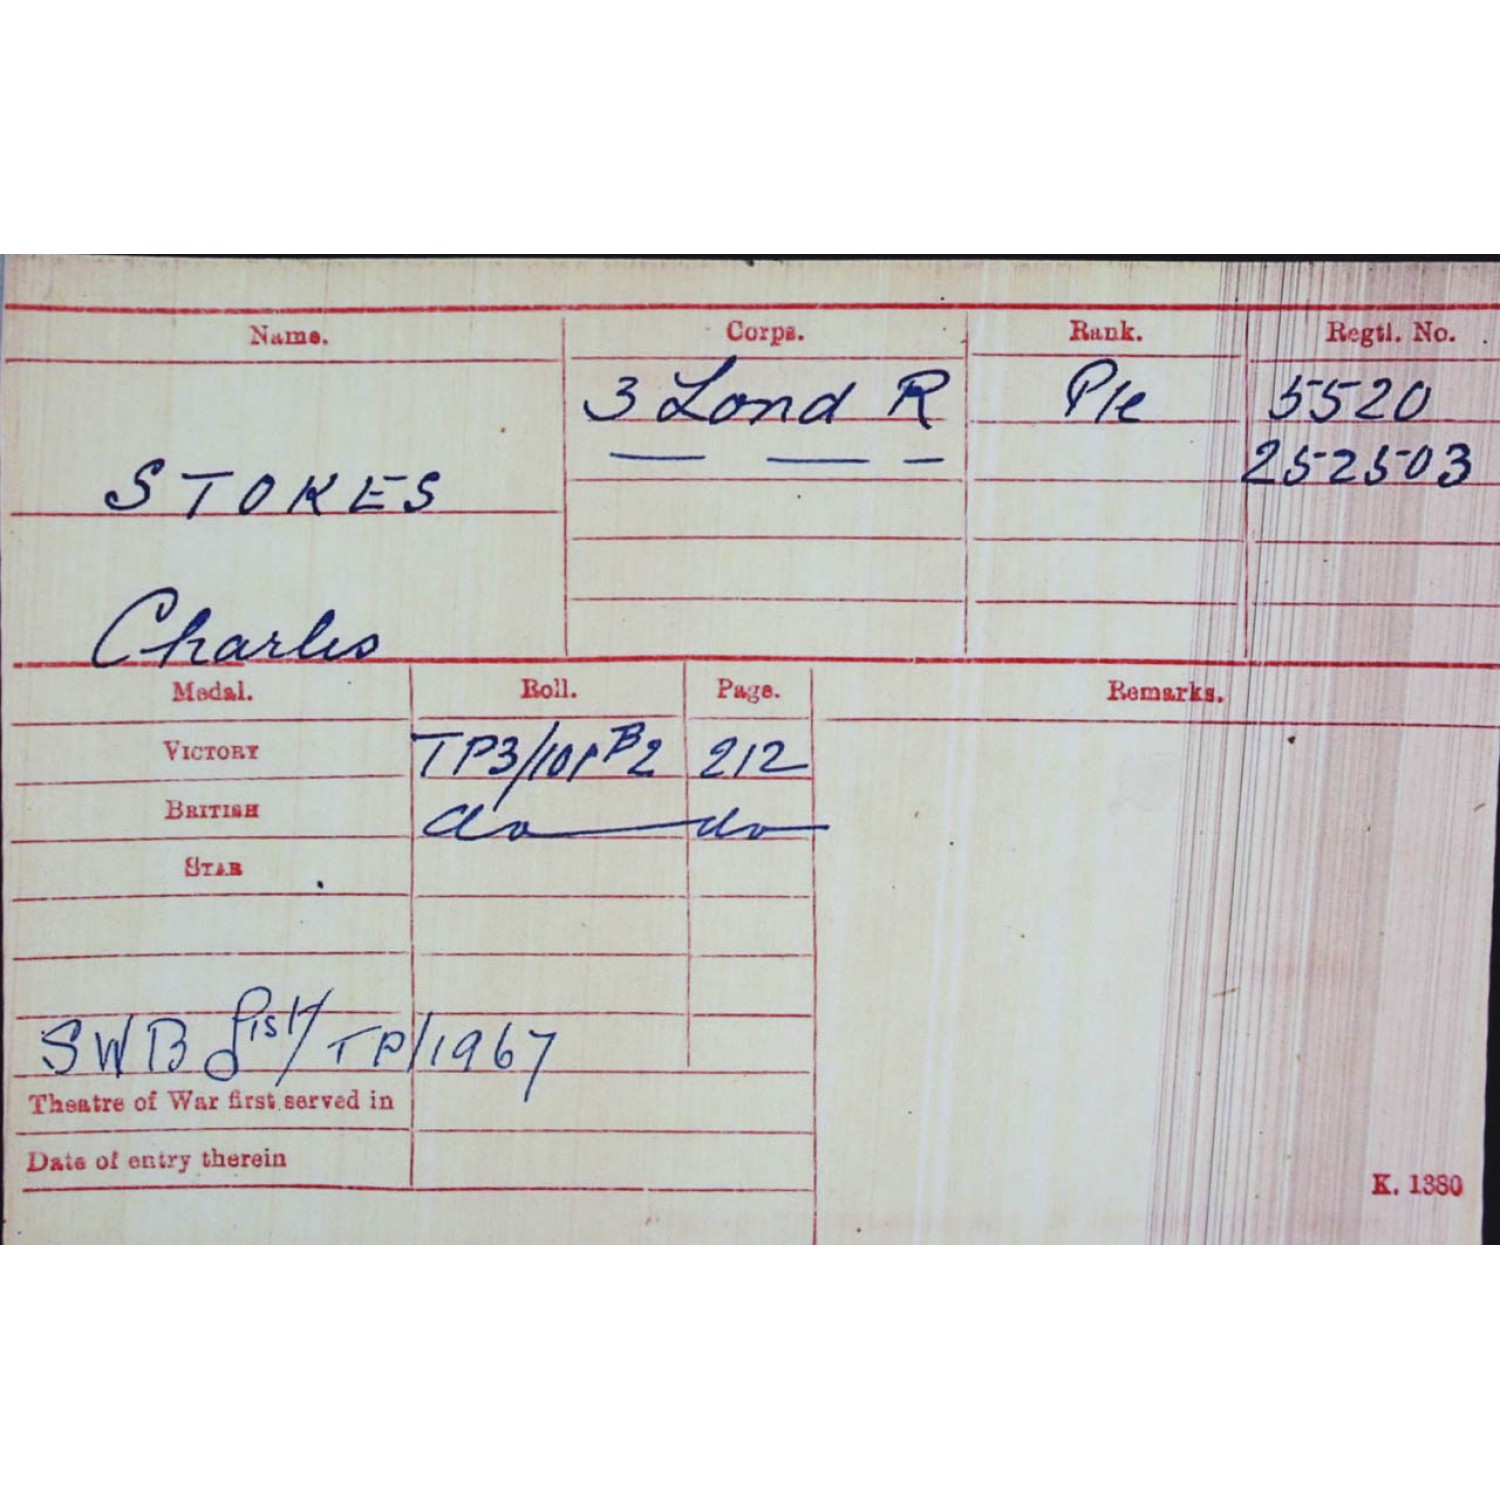 Name. Corps. Rank. Regtl. No.
3 Lond R Pte 5520
— — — 252503
STOKES
Charles
Medal. Roll. Page. Remarks.
VICTORY TP3/101B2 212
BRITISH do do
STAR
SWB List/TP/1967
Theatre of War first served in
Date of entry therein
K. 1380